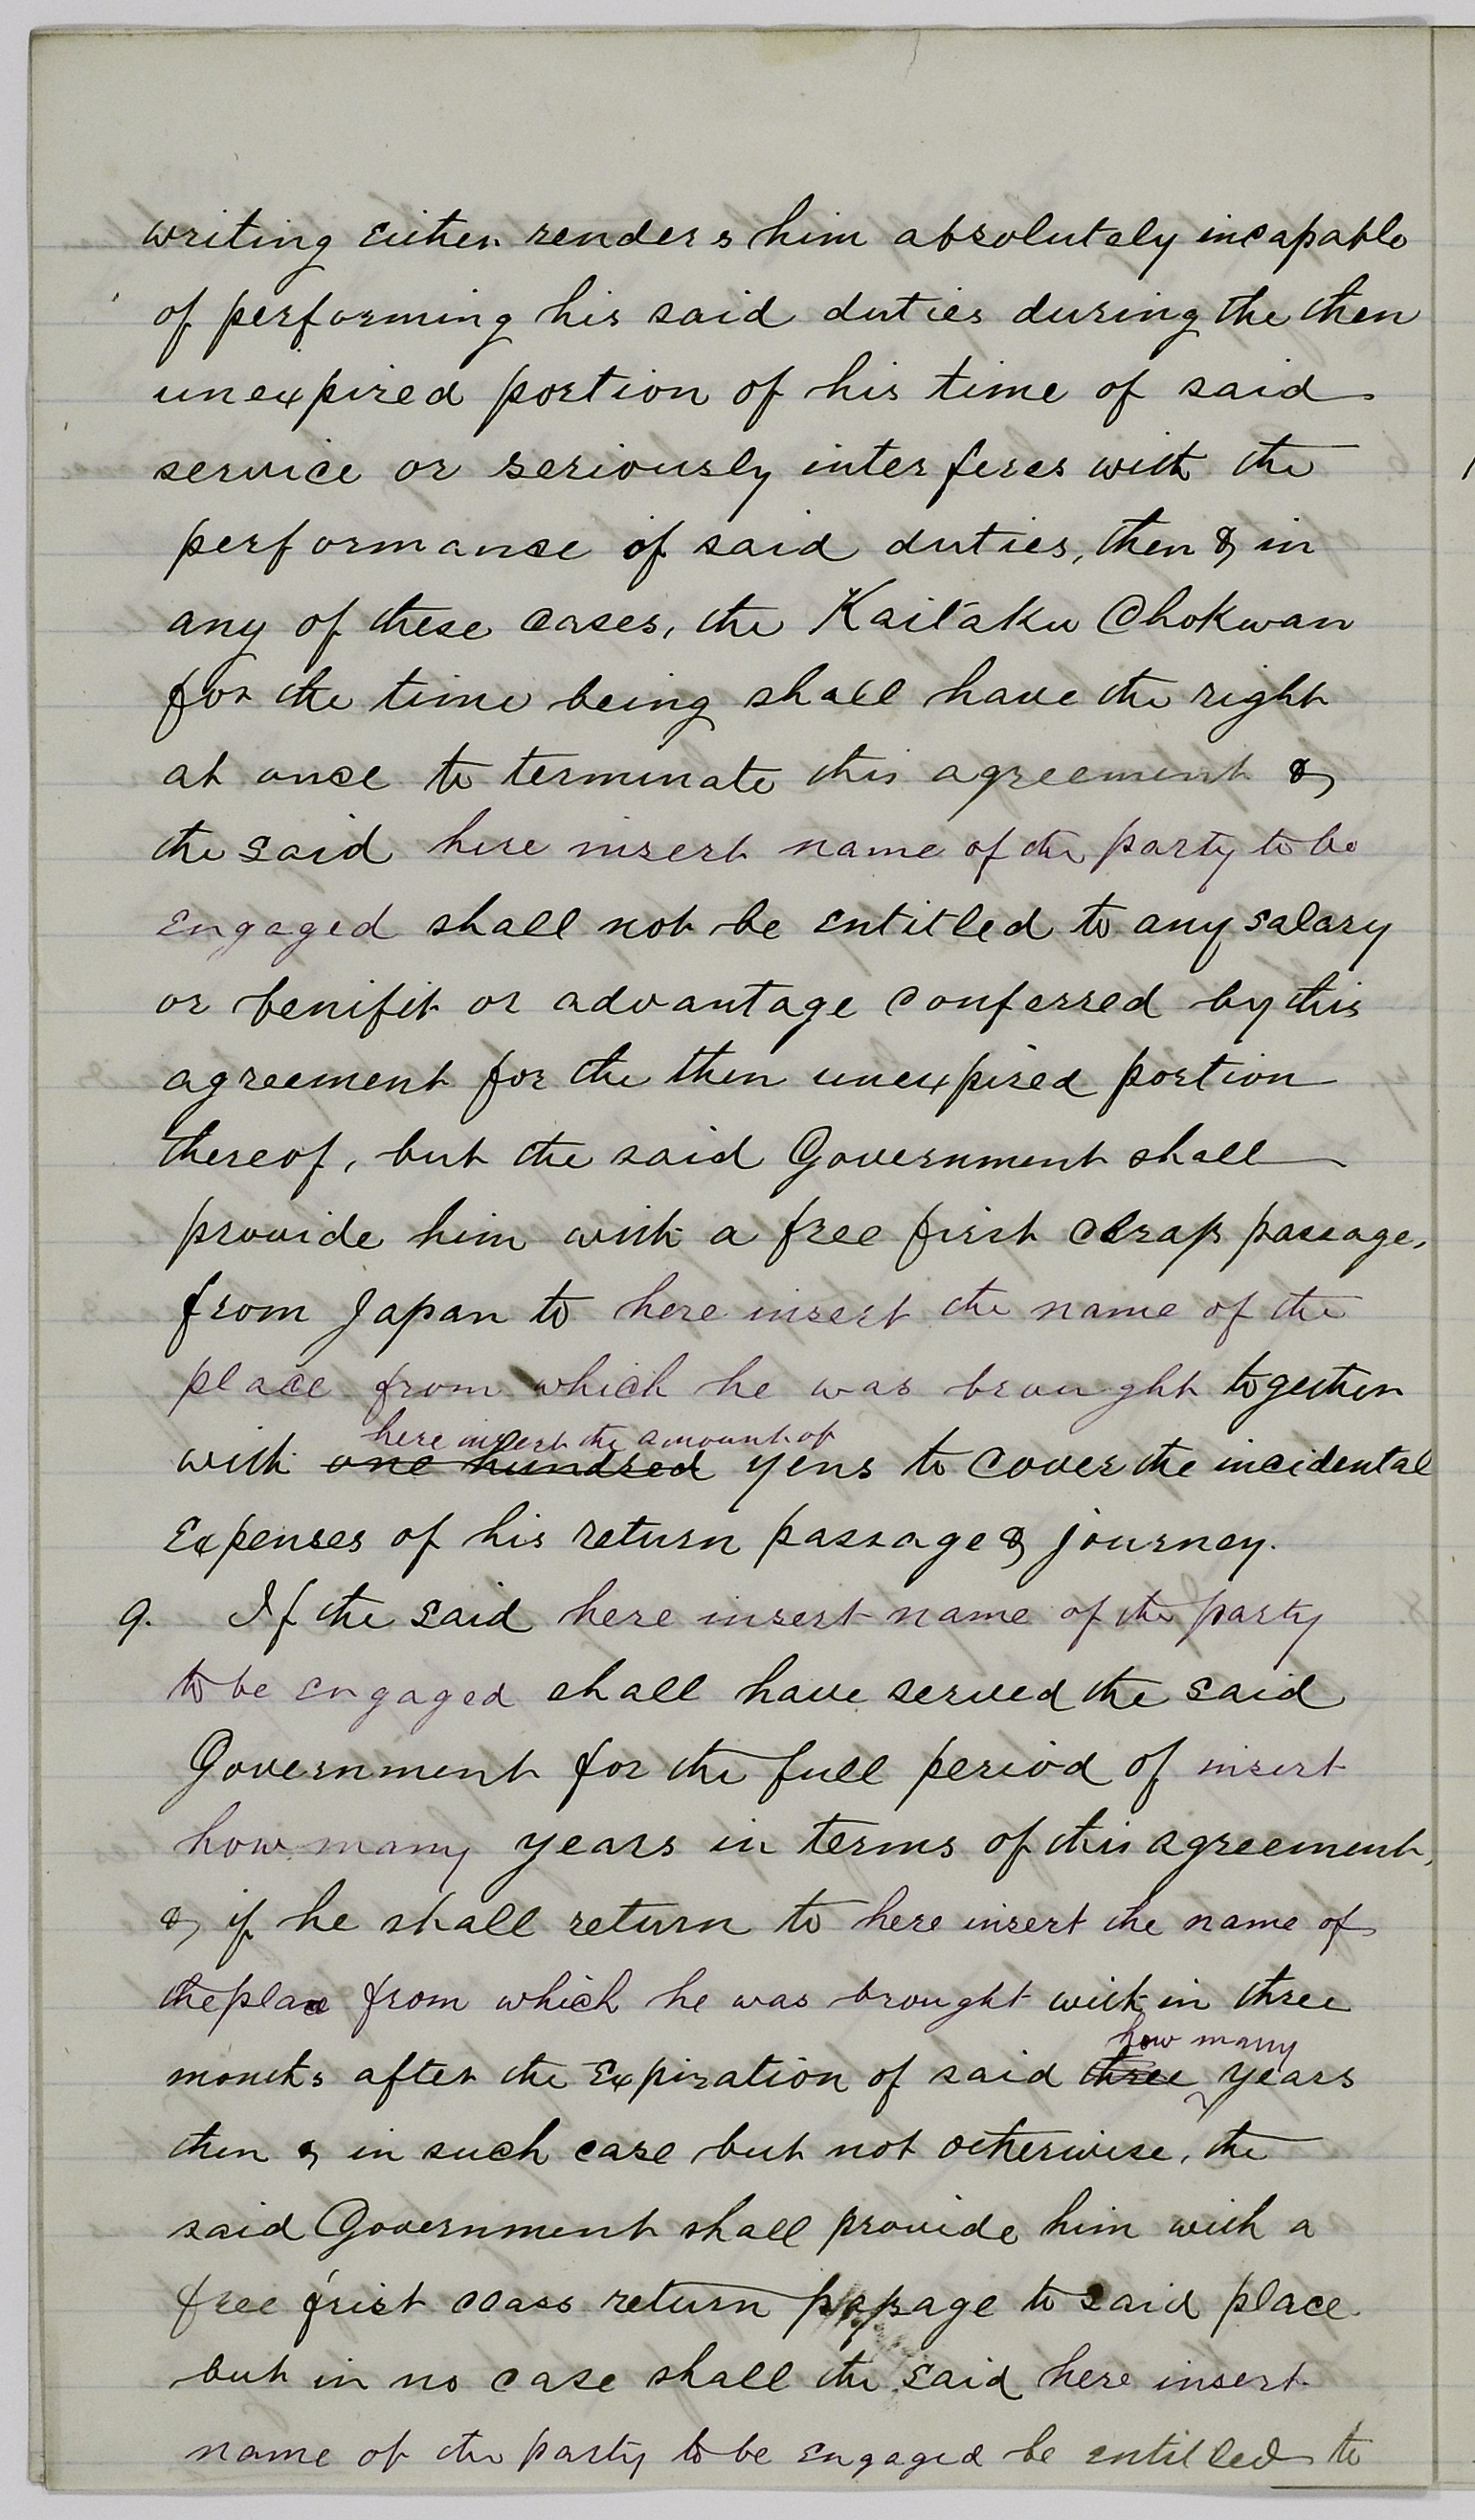 writing either renders him absolutely incapable
of performing his said duties during the then
unexpired portion of his time of said
service or seriously interferes with the
performance of said duties, then & in
any of these cases, the Kaitaku Chokwan
for the time being shall have the right
at once to terminate this agreement &
the said here insert name of the party to be
engaged shall not be entitled to any salary
or benifit or advantage conferred by this
agreement for the then unexpired portion
thereof, but the said Government shall
provide him with a free first class passage,
from Japan to here insert the name of the
place from which he was brought together
here insert the amount of
with one hundred yens to cover the incidental
Expenses of his return passage & journey.
9. If the said here insert name of the party
to be engaged shall have served the said
Government for the full period of insert
how many years in terms of this agreement,
& if he shall return to here insert the name of
the place from which he was brought within three
how many
months after the Expiration of said three years
then & in such case but not otherwise, the
said Government shall provide him with a
free first class return passage to said place
but in no case shall the said here insert
name of the party to be engaged be entitled to